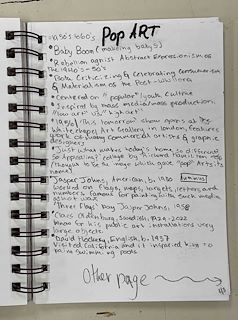 Pop ART
•1950's 1960's
•"Baby Boom" (making babys)
•Rebelion against Abstract Expressionism of
the 1940's-50's
•Both Criticizing & celebrating Consumerism
& Materialism of the Post-WWII era
•Centered on "popular" youth Culture
•Inspired by mass media/mass production:
"low art" vs "high art"
•1956/"This tomorrow" show opens at the
whitechapel Art Gallery in london, features
work of young commercial artists & graphic
designers
•Just what makes today's home so different,
So appealing? collage by Richard Hamilton 1956
thought to be the work which gave "pop" Arts its
name!
•Jasper Johns, American, b. 1930
worked on flags, maps, targets, letters and
numbers famous for painting with such media
as hot wax
•"Three Flags" by Jasper Johns, 1958
•Claes Oldenburg, Swedish, 1929-2022
know for his public art installations very
large objects
•David Hockney, English, b. 1937
Visited California and it inspired him to
paint swimming pools
Other page